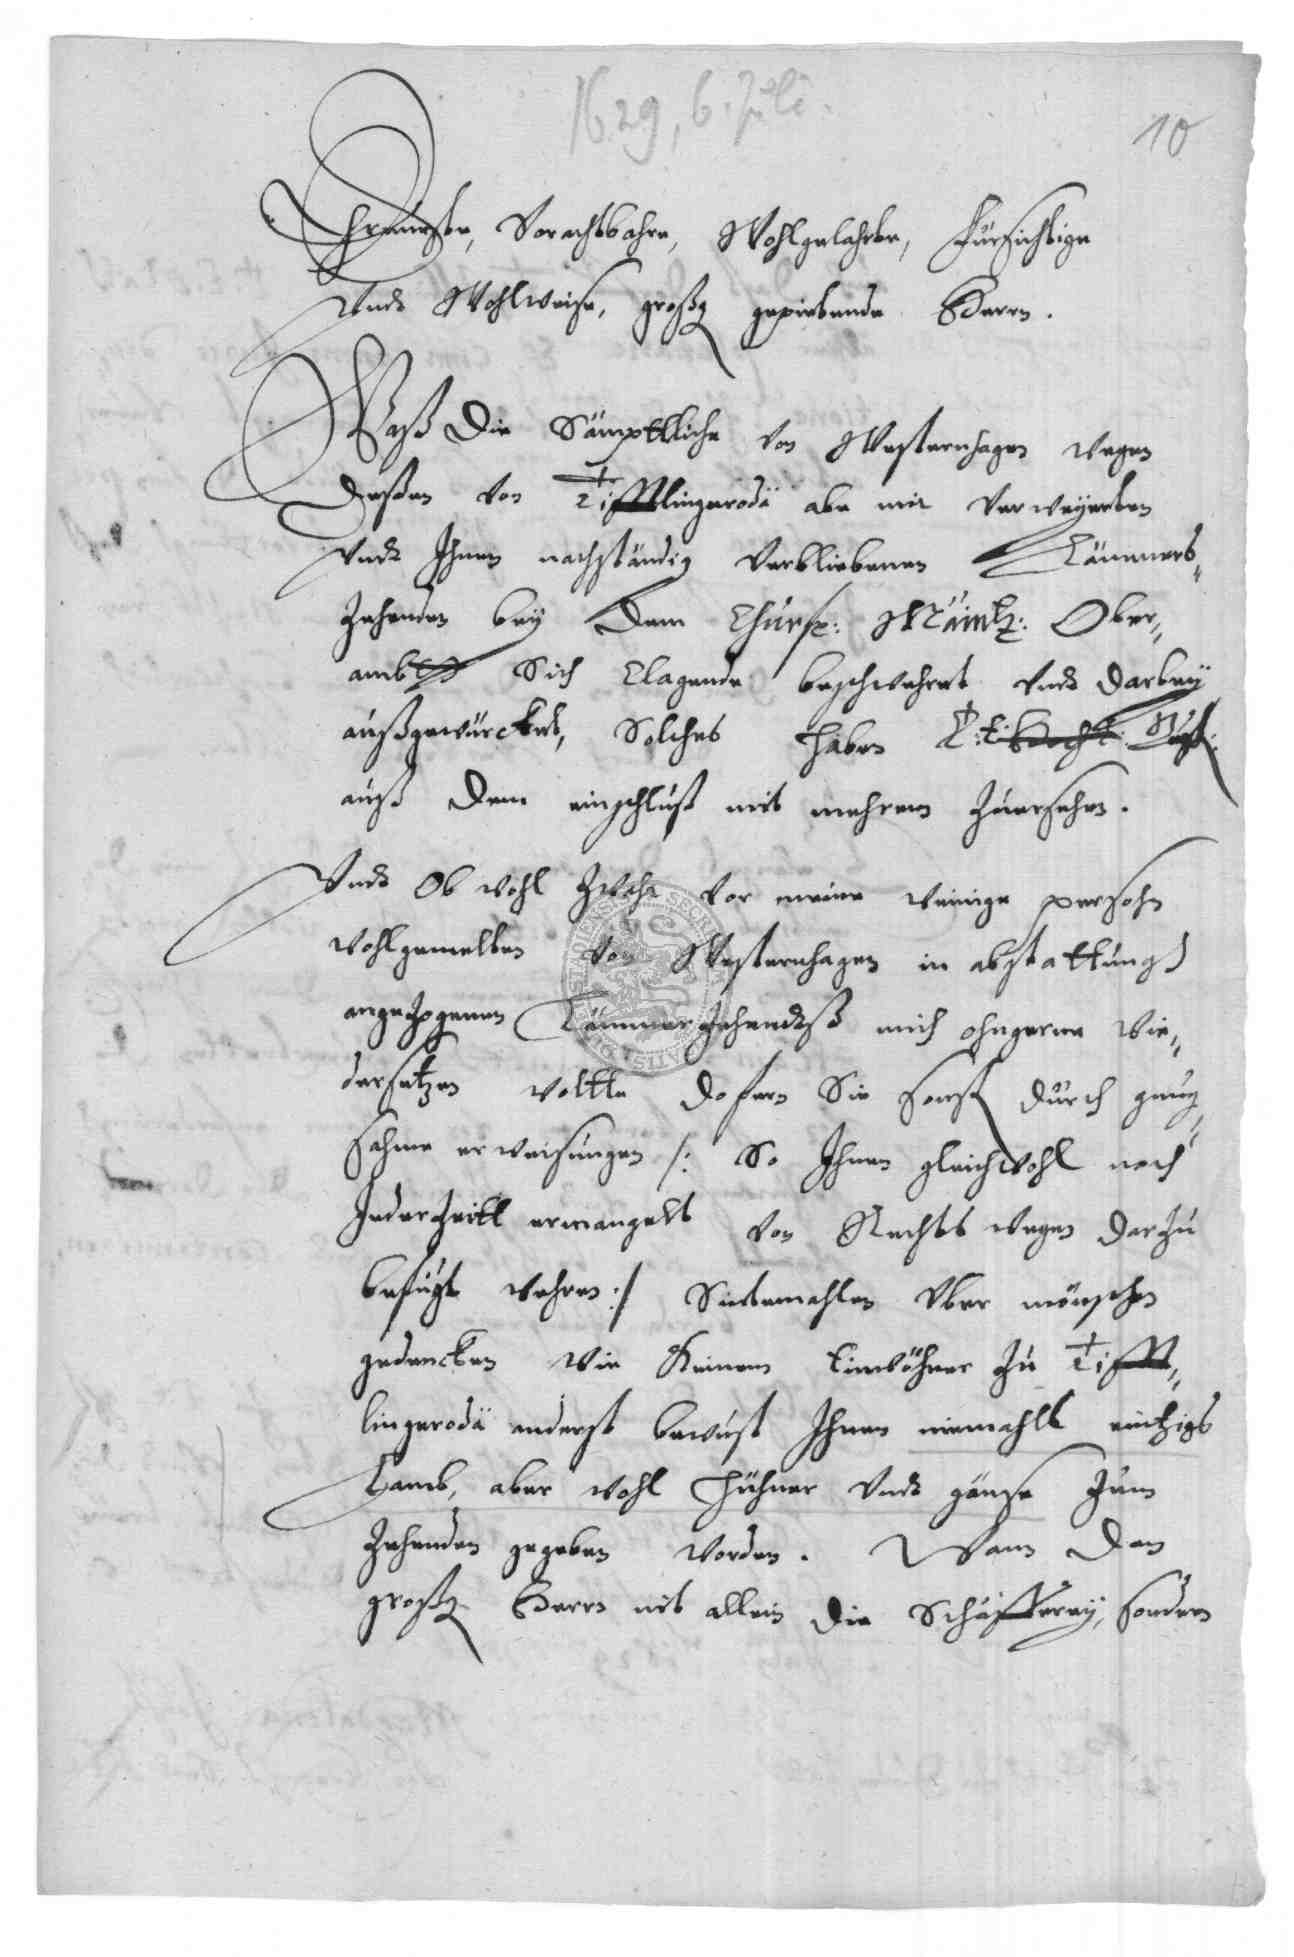 1629, 6. Juli.
10
Ehrnveste, Vorachtbahre, Wohlgelahrte, Fürsichtige
Undt Wohlweise, großg gepietende Herrn.
Waß die Sämptliche von Westernhagen wegen
deßen von Tifftlingerodä abe mir verweyerten
Undt Ihnen nachständig verbliebenen Lämmer
Zehenden bey dem Churf: Mäintz: Ober,,
ambt Sich Clagende beschwehret undt darbey
außgewürcket, Solches haben
auß dem einschluß mit mehrem Zuersehen.
Undt Ob wohl Zwahr vor meine wenige persohn
wohlgemelten von Westernhagen in abstattung
angezogenen Lämmer Zehendtß mich ohngerne wie,,
dersetzen wollte dofern Sie sonst durch gnug,,
sahme erweisungen /: So Ihnen gleichwohl noch
Jederzeitt ermangelt von Rechts wegen darzu
befugt wehren :/ Sintemahlen über mönschen
gedencken wie Keinem Einwöhner zu Tifft,,
lingerodä anderst bewust Ihnen niemahlß eintzigs
Lamb, aber wohl Hühner Undt gänse zum
Zehenden gegeben worden. Wann dan
großg Herrn nit allein die Schäfferey, sondern